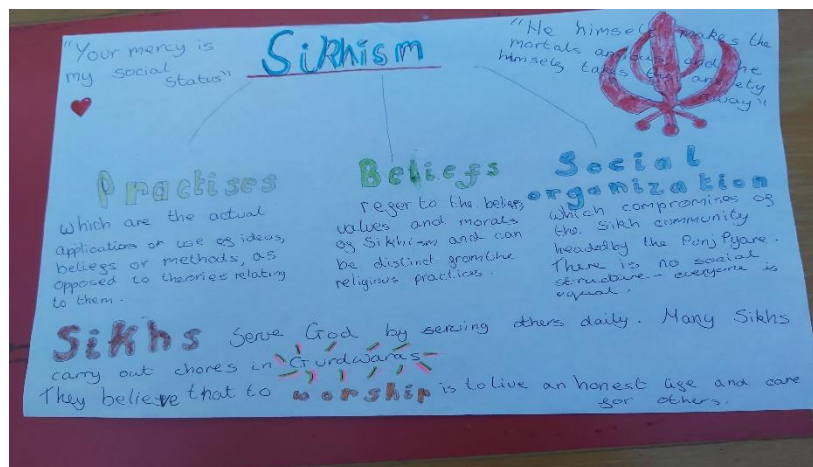 "Your mercy is
my social
Status"
Sikhism
"He himself makes the
mortals anxious and he
himself takes the anxiety
away"
Practises
which are the actual
application or use of ideas,
beliefs or methods, as
opposed to theories relating
to them.
Beliefs
refer to the beliefs,
values and morals
of Sikhism and can
be distinct from the
religious practices.
Social
organization
which compromises of
the Sikh community
headed by the Punj Pyare.
There is no social
structure - everyone is
equal.
Sikhs serve God by serving others daily. Many Sikhs
carry out chores in Gurdwaras
They believe that to worship is to live an honest life and care
for others.